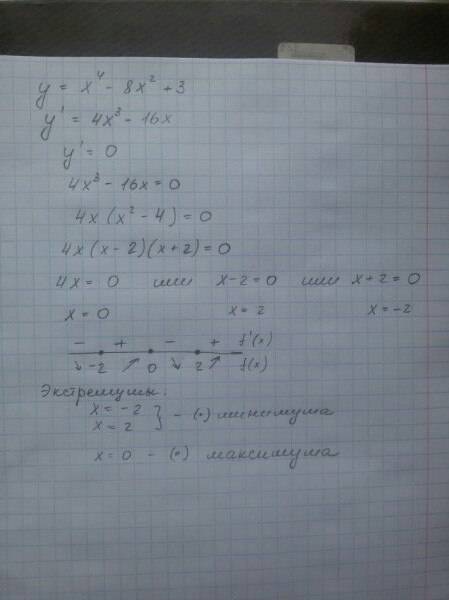 y = x⁴ - 8x² + 3
y' = 4x³ - 16x
y' = 0
4x³ - 16x = 0
4x (x² - 4) = 0
4x (x - 2)(x + 2) = 0
4x = 0 или x - 2 = 0 или x + 2 = 0
x = 0 x = 2 x = -2
- + - + f'(x)
↘ -2 ↗ 0 ↘ 2 ↗ f(x)
Экстремумы:
x = -2
x = 2 } - (•) минимума
x = 0 - (•) максимума